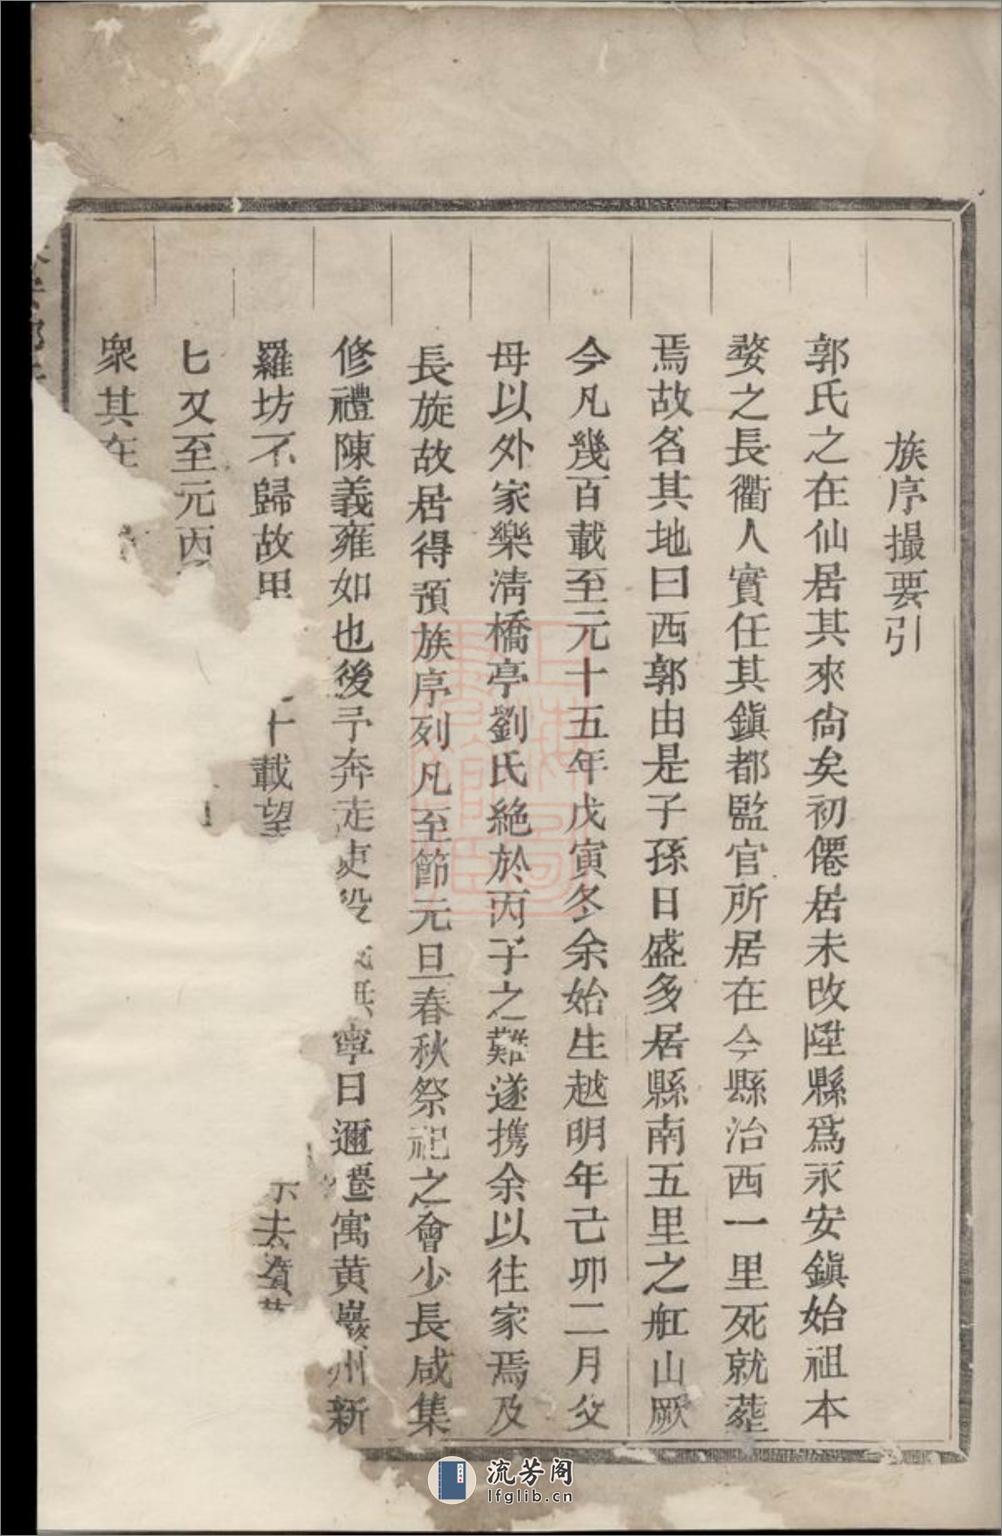 族序撮要引
郭氏之在仙居其來尙矣初僊居未改陞縣爲永安鎭始祖本
婺之長衢人實任其鎭都監官所居在今縣治西一里死就葬
焉故名其地曰西郭由是子孫日盛多居縣南五里之舡山厥
今凡幾百載至元十五年戊寅冬余始生越明年己卯二月父
母以外家樂淸橋亭劉氏絶於丙子之難遂携余以往家焉及
長旋故居得預族序列凡至節元旦春秋祭祀之會少長咸集
修禮陳義雍如也後予奔走吏役寧日邇僊寓黄巖州新
羅坊不歸故里十載望示去資
七又至元丙
衆其在
流芳阁
lfglib.cn